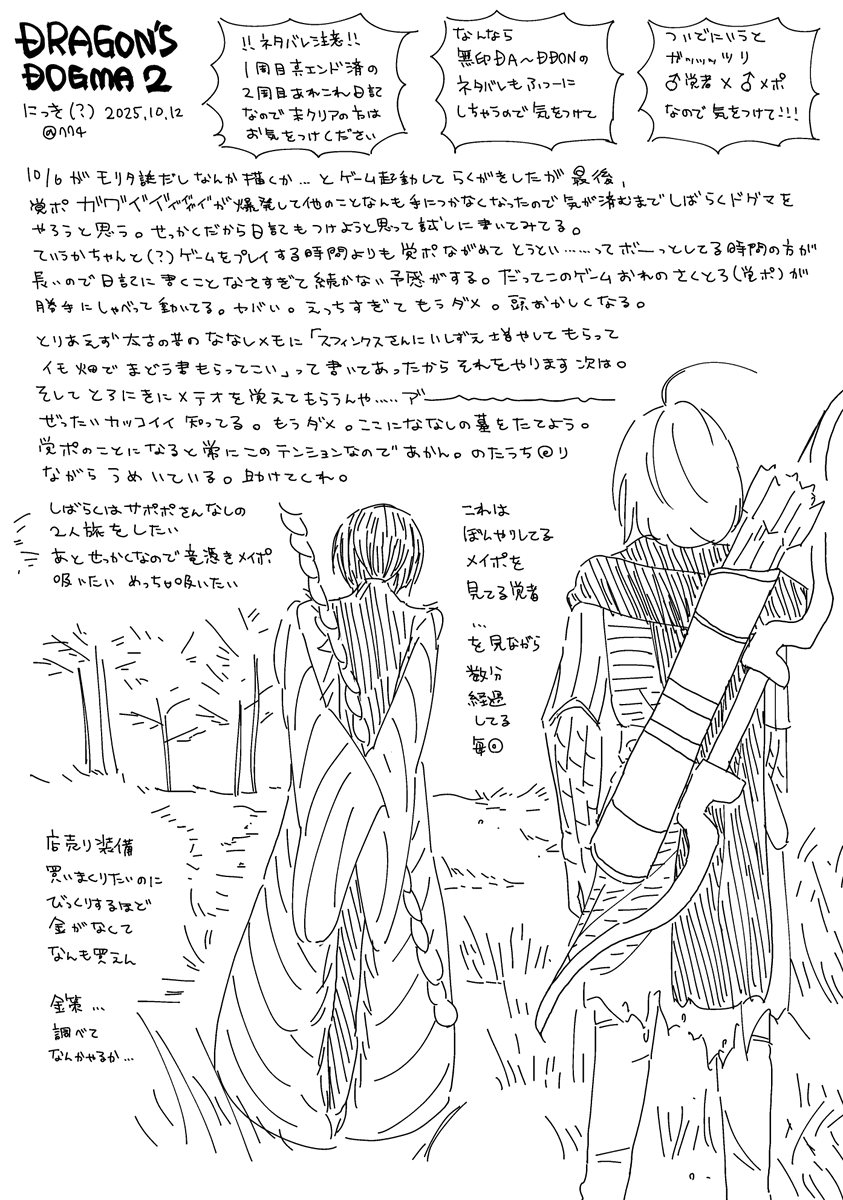 DRAGON'S
DOGMA 2
にっき(?) 2025.10.12
@774
!!ネタバレ注意!!
1周目真エンド済の
2周目あれこれ日記
なので未クリアの方は
お気をつけください
なんなら
無印DA〜DDONの
ネタバレもふつーに
しちゃうので気をつけて
ついでにいうと
ガッッッツリ
♂覚者×♂メポ
なので気をつけて!!!
10/6がモリタ誕だしなんか描くか…とゲーム起動してらくがきしたが最後、
覚ポガワイイイイイイが爆発して他のことなんも手につかなくなったので気が済むまでしばらくドグマを
やろうと思う。せっかくだから日記もつけようと思って試しに書いてみてる。
ていうかちゃんと(?)ゲームをプレイする時間よりも覚ポながめてとうとい……ってボーーっとしてる時間の方が
長いので日記に書くことなさすぎて続かない予感がする。だってこのゲームおれのさくとろ(覚ポ)が
勝手にしゃべって動いてる。ヤバい。えっちすぎてもうダメ。頭おかしくなる。
とりあえず太古の昔のななしメモに「スフィンクスさんにいしずえ増やしてもらって
イモ畑でまどう書もらってこい」って書いてあったからそれをやります次は。
そしてとろにきにメテオを覚えてもらうんや……ア゛ーーーー
ぜったいカッコイイ知ってる。もうダメ。ここにななしの墓をたてよう。
覚ポのことになると常にこのテンションなのであかん。のたうち@り
ながらうめいている。助けてくれ。
しばらくはサポポさんなしの
2人旅をしたい
あとせっかくなので竜憑きメイポ
吸いたい めっちゃ吸いたい
これは
ぼんやりしてる
メイポを
見てる覚者
…
を見ながら
数分
経過
してる
毎◎
店売り装備
買いまくりたいのに
びっくりするほど
金がなくて
なんも買えん
金策…
調べて
なんかやるか…